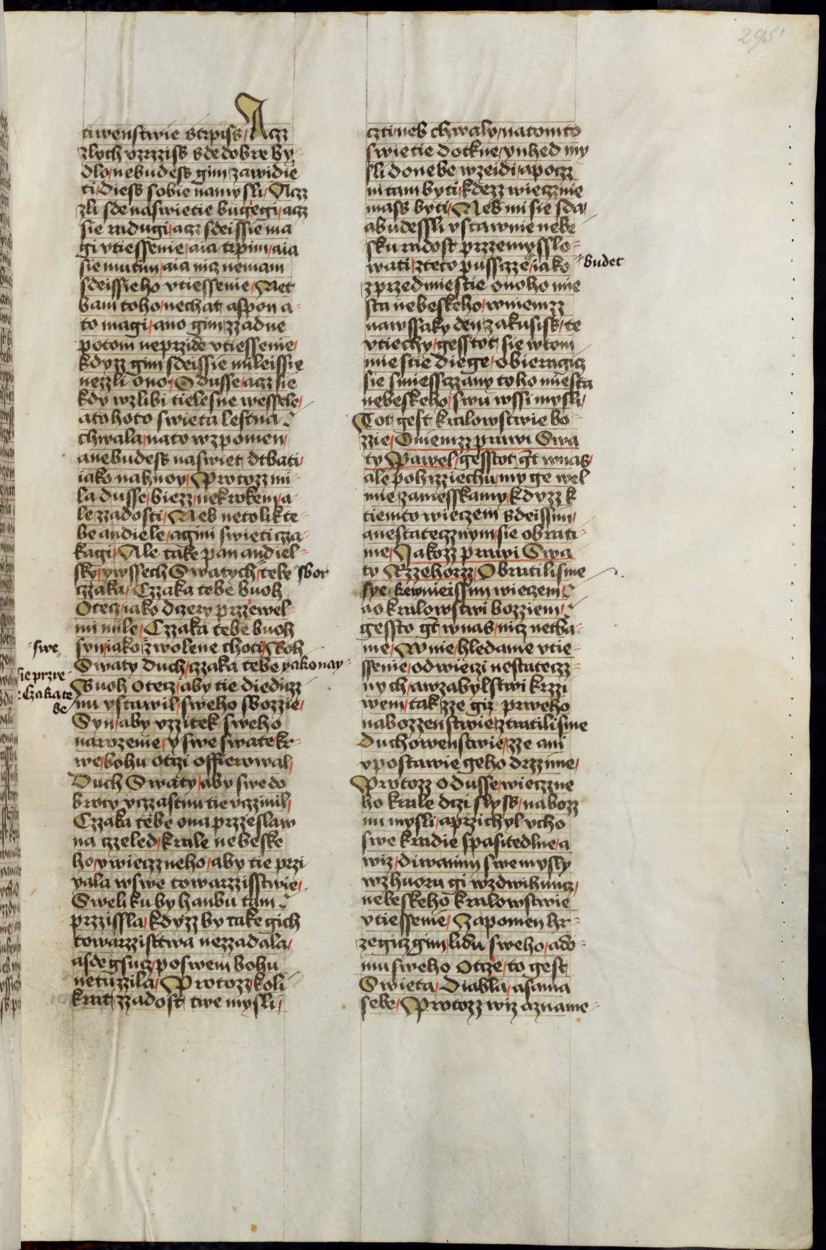 295
tiwenstwie strpiss / Acz
zlych vzrziss sde dobre by
dlo / nebudess gim zawidie
ti / diess sobie na mysli / Acz
zli sde naswietie bugegi / acz
sie radugi / acz sdeissie ma
gi vtiessenie / a ia trpim / a ia
sie mutim / a ia nicz nemam
sdeissieho vtiessenie / Net
bam toho / nechat aspon a
to magi / ano gim zzadne
potom neprzide vtiessenie /
kdyzz gim sdeissie mileissie
nezzli ono / O dusse / acz sie
kdy wzlibi tielesne wessele /
a tohoto swieta lestna
chwala / na to wzpomen /
a nebudess naswiet dtbati /
iako nahnoy / Protozz mi
la dusse / biezz / ne krokem / a
le zzadosti / Neb netolik te
be andiele / a gini swieti cza
kagi / Ale take pan andiel
sky / y wssech Swatych / tebe sbor
czzaka / Czzaka tebe buoh
Otecz / iako dczery przewel
mi mile / Czzaka tebe buoh
syn / iako zwolene choti / Boh
swe
Swaty duch / czzaka tebe yako nay
sie przie
Buoh Otecz / aby tie diedicz
Czaka te
mi vstawil / sweho sbozzie /
be
Syn / aby vzzitek sweho
narozenie / y swe swate kr
we / bohu otczi offierowal /
Duch Swaty / aby swe do
broty vczastnu tie vczinil /
Czzaka tebe ona przeslaw
na czzeled / krale nebeske
ho / y wieczneho / aby tie przi
yala w swe towarzisstwie /
Sweliku by hanbu tam
przissla / kdyzz by take gich
towarzistwa nezzadala /
a sde gsucz / po swem bohu
netuzzila / Protozz koli
krat zzadost twe mysli /
czti neb chwaly / na tomto
swietie dotkne / vnhed my
sli do nebe wzeidi / a poczz
ni tam byti / kdezz wiecznie
mass byti / Neb mi sie sda /
a budessli vstawnie nebe
sku radost przemysslo
wati / z teto pusscze / iako budet
z przedmiestie onoho mie
sta nebeskeho / w niemzz
na wssaky den zakusiss / te
vtiechy / gesstot sie w tom
miestie diege / Obieragicz
sie smiessczany toho miesta
nebeskeho / swu wssi mysli /
Tot gest kralowstwie bo
zzie / O niemzz prawi Swa
ty Pawel / gesstot gt w nas /
ale pohrziechu / my ge wel
mie zamesskamy / kdyzz k
tiemto wieczem sdeissim /
a nestatecznym / sie obrati
me / Jakozz prawi Swa
ty Rzehorz / Obratili sme
sye / k ewnieissim wieczem
ao kralowstwi bozziem /
gessto gt w nas / nicz netba
me / Wnie hledame vtie
ssenie / od wieczi nestatecz
nych / a w zabylstwi krzi
wem / tak zze giz prweho
nabozzenstwie ztratili sme
duchowenstwie / zze ani
vpostawie geho drzime /
Protozz o dusse / wieczne
ho krale dczi slyss / nabozz
mi mysli / a przichyl vcho
swe k radie spasitedlne / a
wiz / diwanim swe mysly
wzhuoru gi wzdwihnucz /
nebeskeho kralowstwie
vtiessenie / Zapomen hr
zegicz gim lidu sweho / a do
mu sweho Otcze / to gest
Swieta / Diabla / a sama
sebe / Protozz wiz a zname